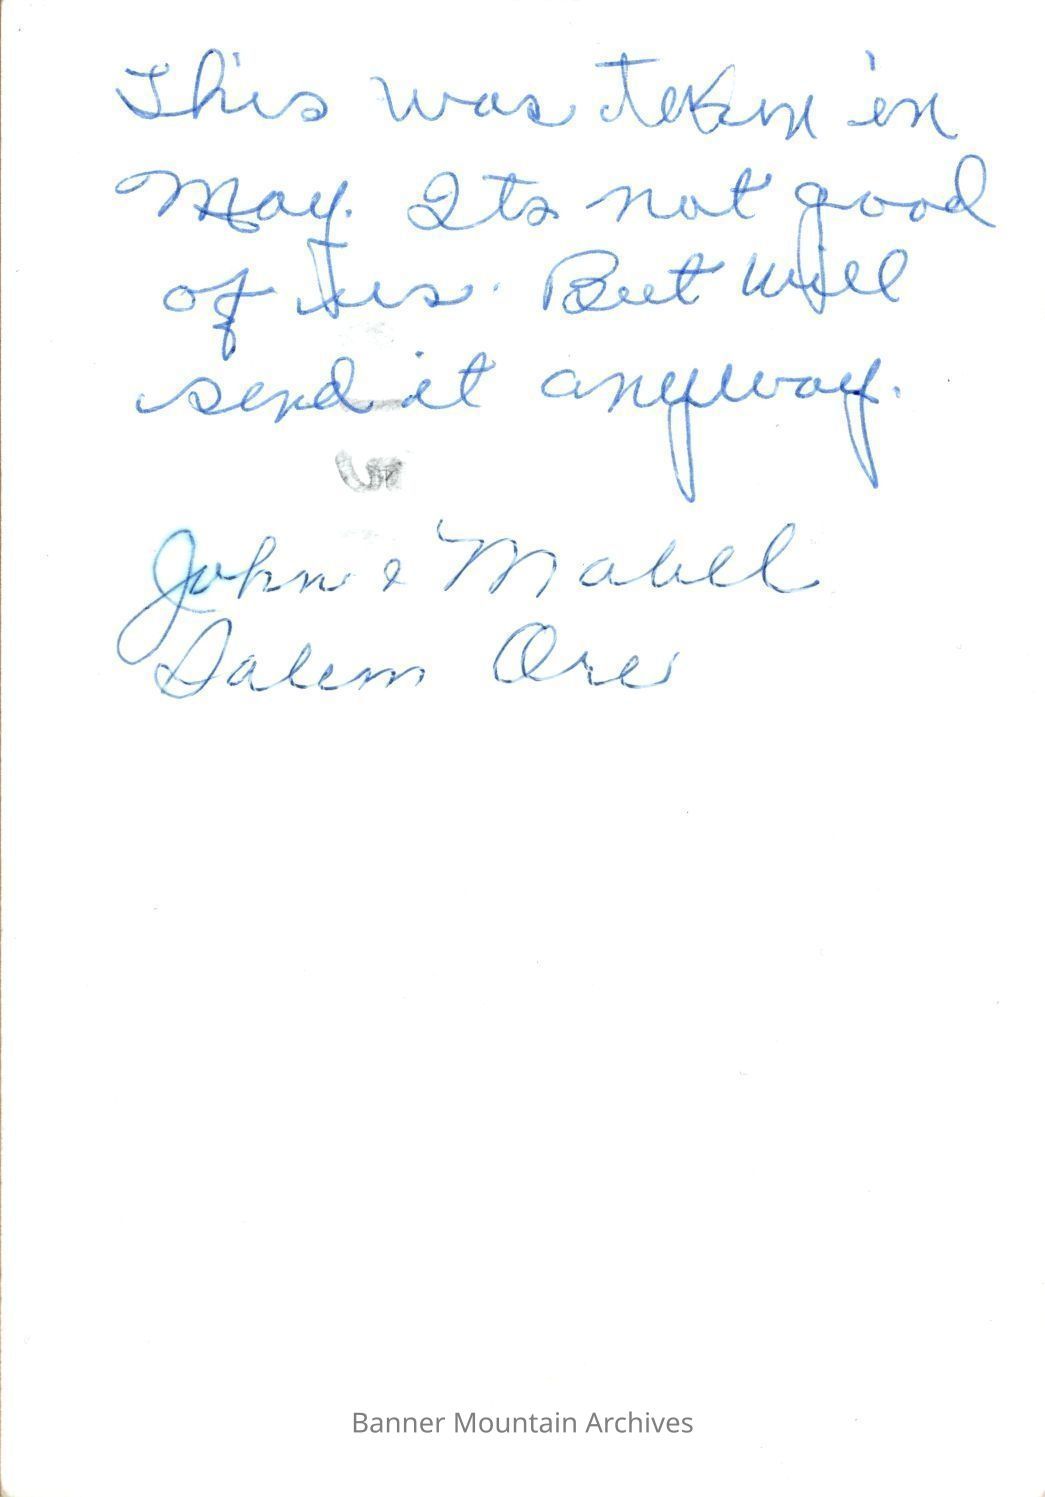 This was taken in
May. Its not good
of us. But will
send it anyway.
John & Mabel
Salem Ore
Banner Mountain Archives